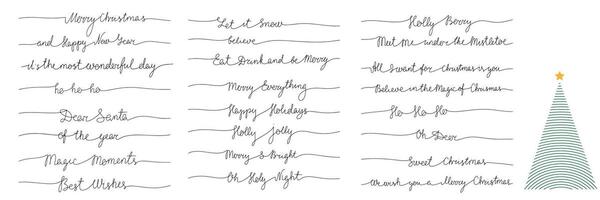 Merry Christmas
and Happy New Year
it's the most wonderful day
ho-ho-ho
Dear Santa
of the year
Magic Moments
Best Wishes
Let it Snow
believe
Eat Drink and be Merry
Merry Everything
Happy Holidays
Holly Jolly
Merry & Bright
Oh Holy Night
Holly Berry
Meet Me under the Mistletoe
All I want for christmas is you
Believe in the Magic of Chrismas
Ho Ho Ho
Oh Deer
Sweet Christmas
we wish you a Merry Christmas